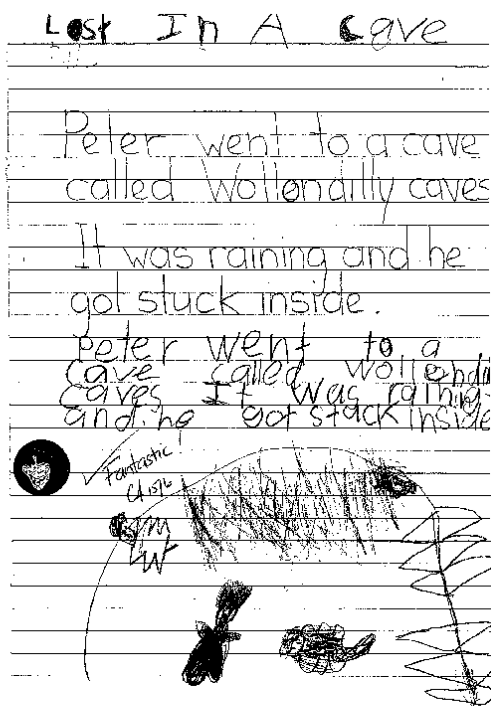 Lost In A Cave
Peter went to a cave
called Wollondilly caves
It was raining and he
got stuck inside.
Peter went to a
Cave called Wollondi
Caves It was raining
and he got stuck inside
Fantastic